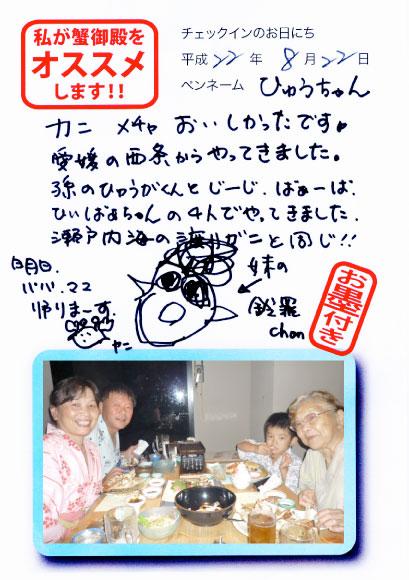 私が蟹御殿を
オススメ
します!!
チェックインのお日にち
平成22年 8月22日
ペンネーム ひゅうちゃん
カニ メチャ おいしかったです。
愛媛の西条からやってきました。
孫のひゅうがくんと じーじ.ばぁーば.
ひぃばぁちゃんの4人でやってきました.
瀬戸内海の渡りガニと同じ!!
明日.
パパ.ママ
帰りまーす.
妹の
鈴羅
chan
お墨付き